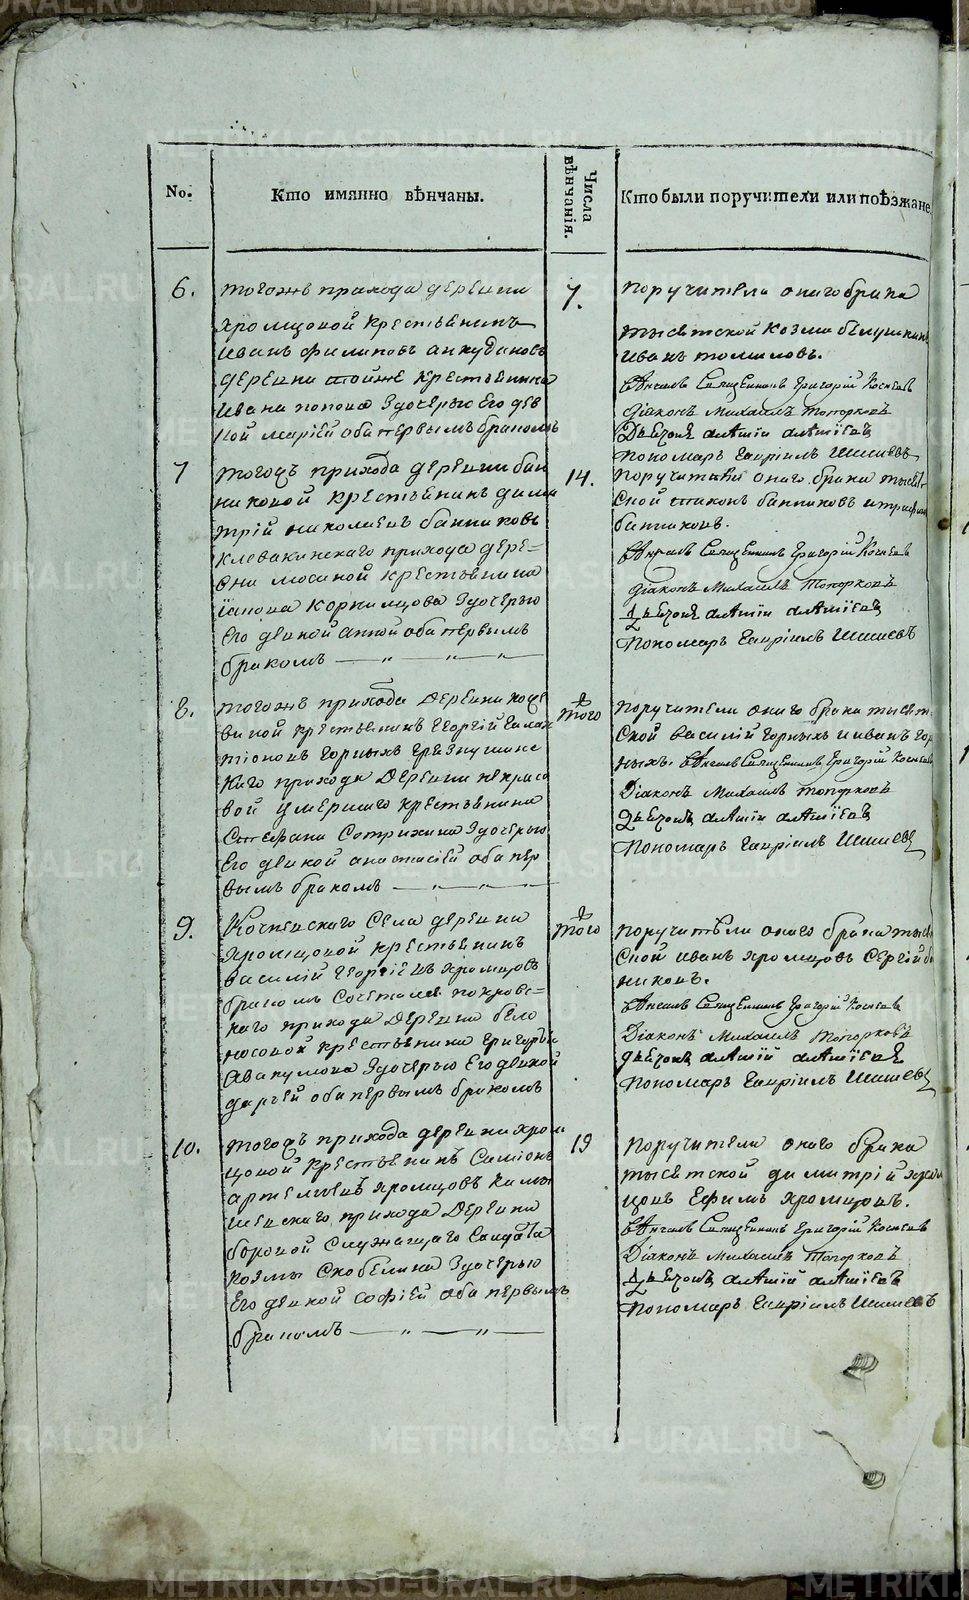 METRIKI.GASO-URAL.RU
No.
Кто имянно вѣнчаны.
Числа вѣнчанія.
Кто были поручители или поѣзжане.
6.
тогожъ прихода деревни
хромцовой крестьянинъ
иванъ филиповъ анкудиновъ
деревни тойже крестьянина
ивана попова здочерью его дев
кой маріей оба первымъ бракомъ
7.
поручители онаго брака
тысяцкой козма белушкинъ
иванъ томиловъ.
вѣнчалъ Священникъ Григорій
Діаконъ Михаилъ топорковъ
Дьячокъ
Пономарь Гавріилъ Шишевъ
7
тогожъ прихода деревни бан
никовой крестьянинъ дими
трій николаевъ банниковъ
клевакинскаго прихода дере=
вни лосиной крестьянина
іакова корнилцова здочерью
его девкой анной оба первымъ
бракомъ
14.
поручители онаго брака тысят
ской банниковъ
банниковъ.
вѣнчалъ Священникъ Григорій
Діаконъ Михаилъ Топорковъ
Дьячокъ
Пономарь Гавріилъ Шишевъ
8.
тогожъ прихода деревни
крестьянинъ Георгій
горныхъ
каго прихода деревни некрасо
вой умершаго крестьянина
Стефана здочерью
Его девкой анастасіей оба пер
вымъ бракомъ
того
поручители онаго брака тысят
ской василій горныхъ и иванъ гор
ныхъ. вѣнчалъ Священникъ Григорій
Діаконъ Михаилъ топорковъ
Дьячокъ
Пономарь Гавріилъ Шишевъ
9.
Кочневскаго Села деревни
хромцовой крестьянинъ
василій Георгіевъ хромцовъ
бракомъ Сочетался покровс=
каго прихода деревни бело
носовой крестьянина григорія
авакумова здочерью Его девкой
дарьей оба первымъ бракомъ
того
поручители онаго брака тысят
ской иванъ хромцовъ Сергій ба
никовъ.
вѣнчалъ Священникъ Григорій
Діаконъ Михаилъ топорковъ
дьячокъ
Пономарь Гавріилъ Шишевъ
10.
тогожъ прихода деревни хром
цовой крестьянинъ Симіонъ
артемьевъ хромцовъ камы
шевскаго прихода деревни
боровой Служащаго Салдата
козмы Скобелина здочерью
Его девкой софіей оба первымъ
бракомъ
19
поручители онаго брака
тысятской димитрій хром
цовъ Ефимъ хромцовъ.
вѣнчалъ Священникъ Григорій
Діаконъ Михаилъ Топорковъ
Дьячокъ
Пономарь Гавріилъ Шишевъ